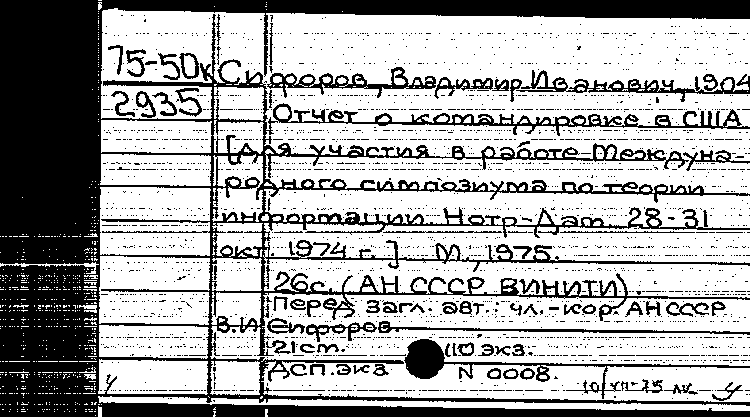 75-50к Сифоров, Владимир Иванович, 1904
2935 Отчет о командировке в США
[для участия в работе Междуна-
родного симпозиума по теории
информации. Нотр-Дам. 28-31
окт. 1974 г.] М., 1975.
26с. (АН СССР. ВИНИТИ).
Перед загл. авт.: чл.-кор. АН СССР
В.И. Сифоров.
21 см. 110 экз.
ДСП. экз N 0008.